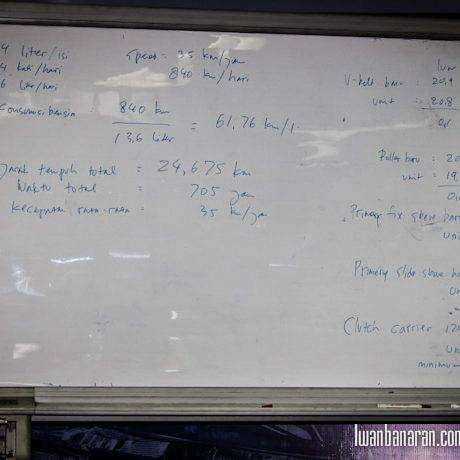 4 liter/isi
4 kali/hari
6 liter/hari
Speed = 35 km/jam
840 km/hari
Konsumsi bensin
840 km
13,6 liter
= 61,76 km/l
Jarak tempuh total = 24,675 km
Waktu total = 705 jam
Kecepatan rata-rata = 35 km/jam
V-belt baru : 20,9
unit : 20,8
Roller baru : 20
unit : 19,
Primary fix sheave baru
unit
Primary slide sheave
Clutch carrier 12
minimum
iwanbanaran.com